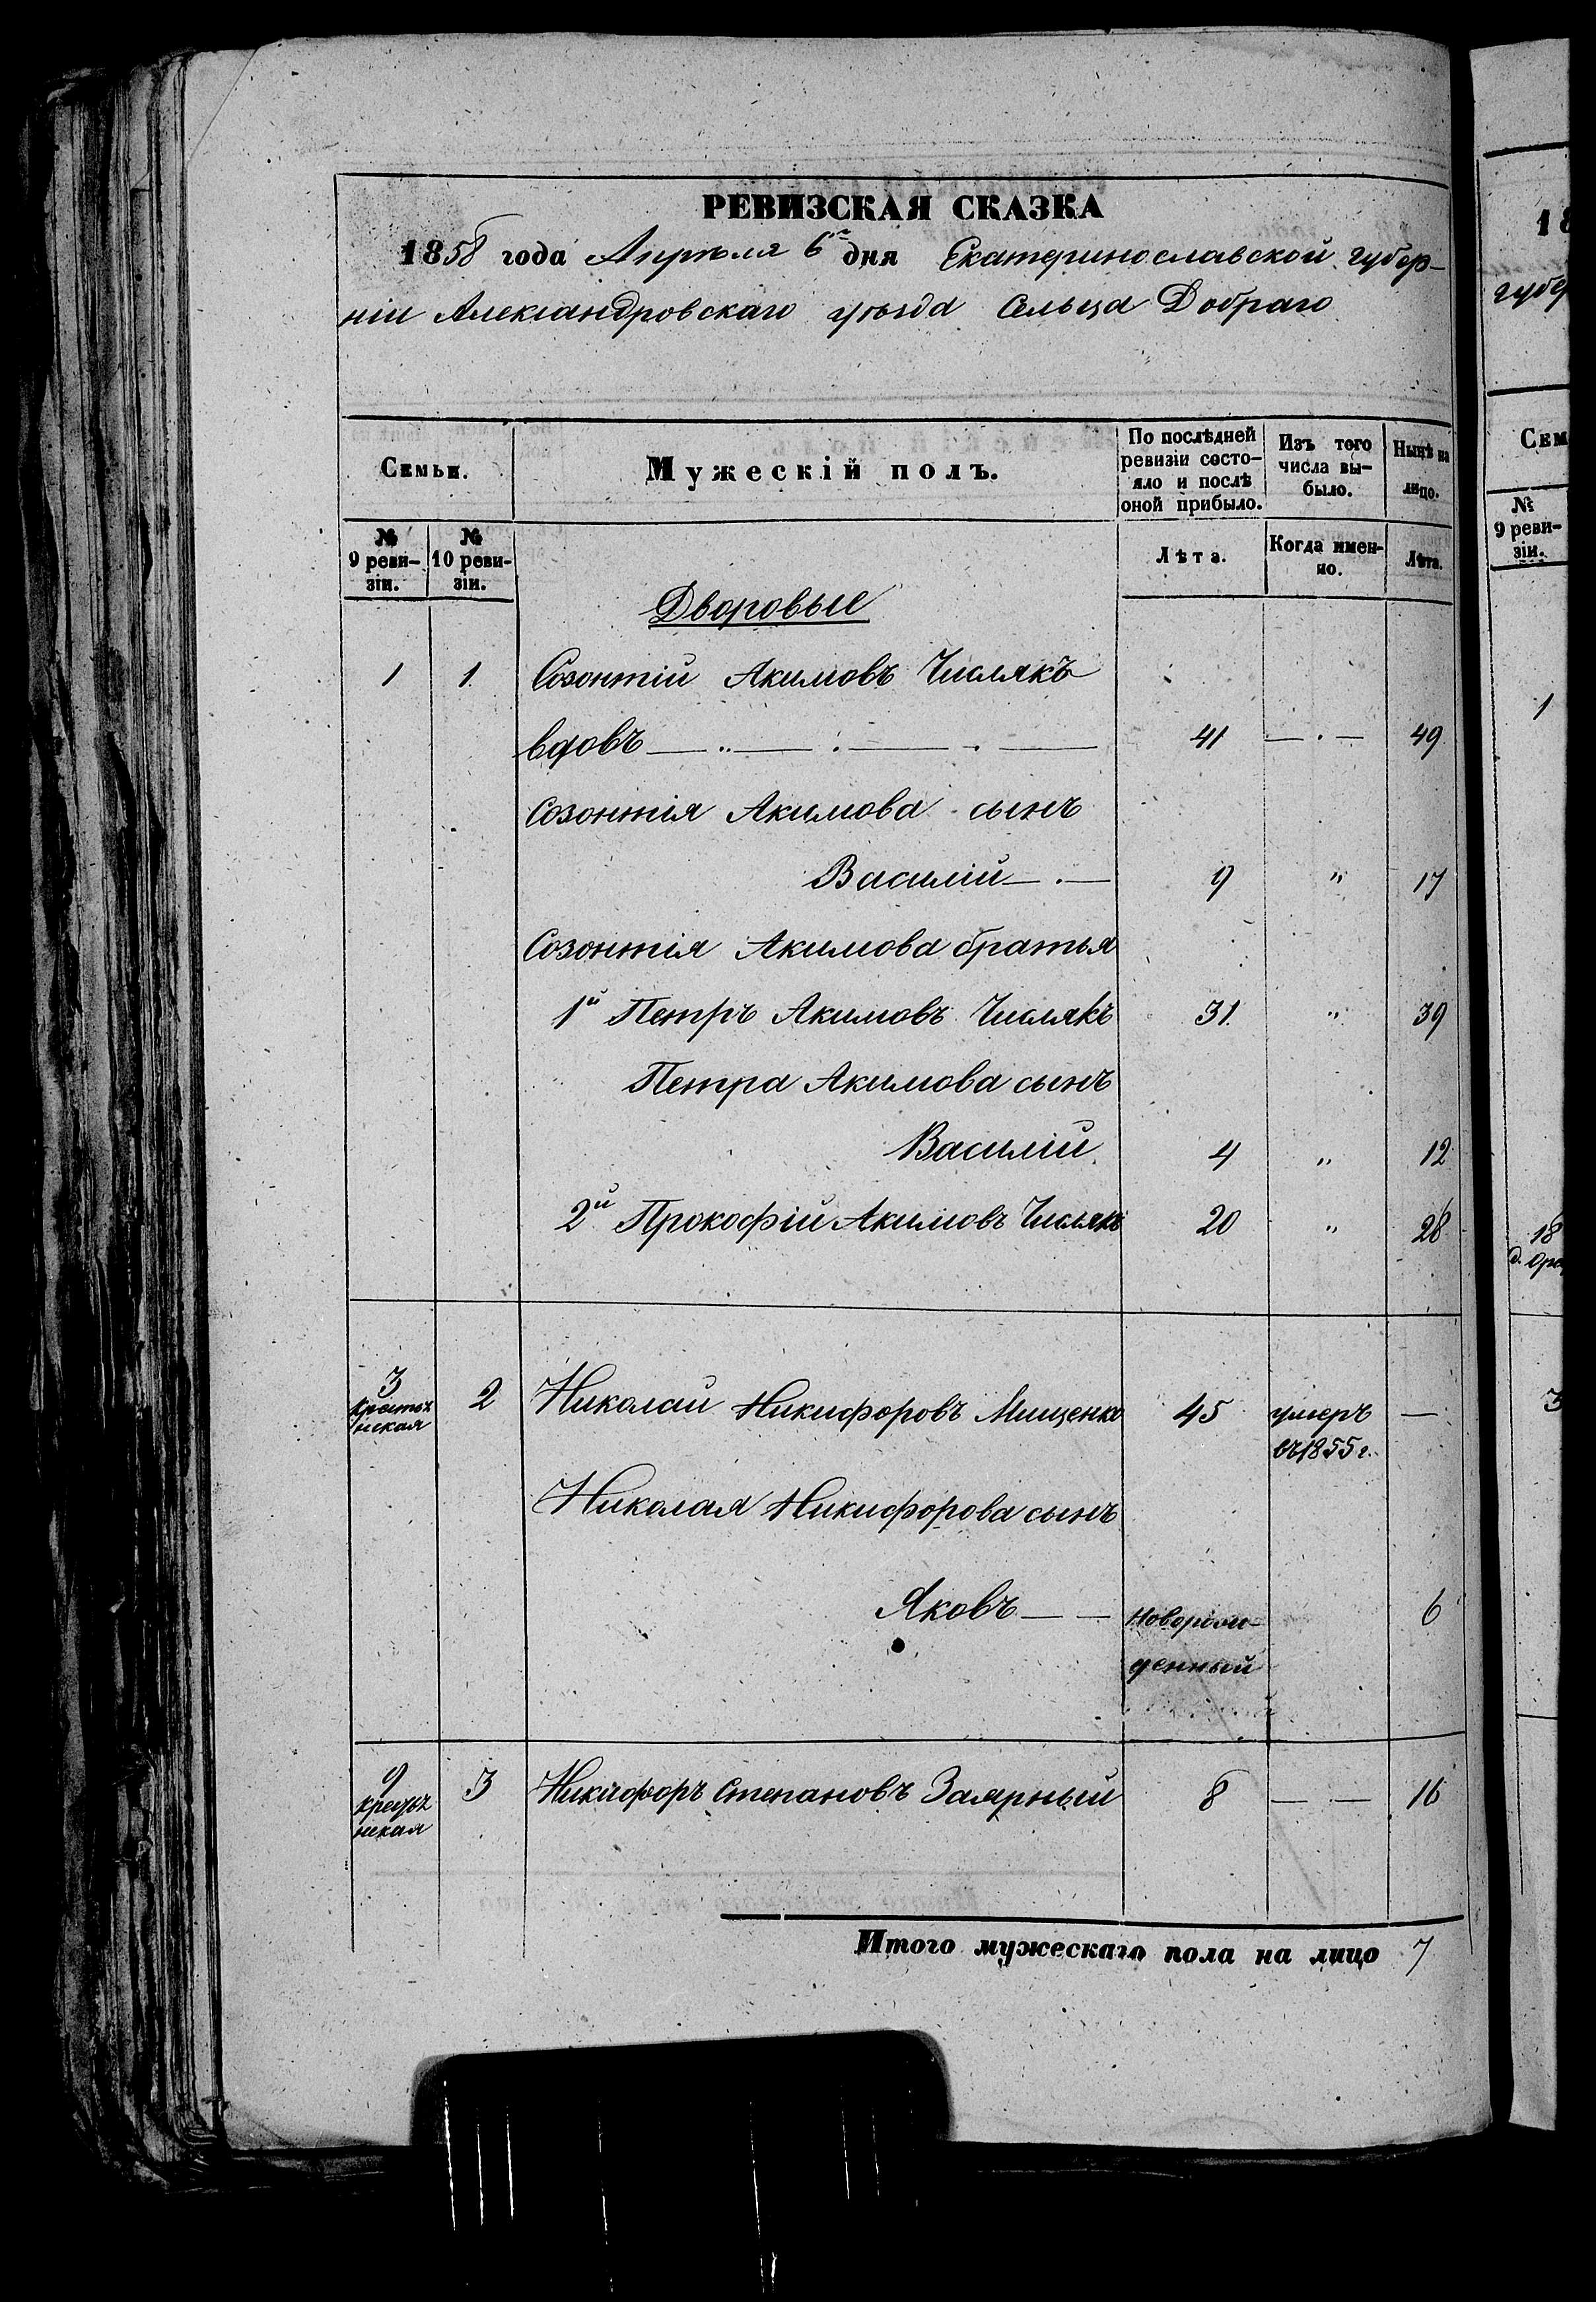 РЕВИЗСКАЯ СКАЗКА
1858 года Апрѣля 6го дня Екатеринославской губер-
ніи Александровскаго уѣзда Сельца Добраго
Семьи.
Мужескій полъ.
По послѣдней ревизіи состо-
яло и послѣ
оной прибыло.
Изъ того
числа вы-
было.
Нынѣ на
лицо.
№
9 реви-
зіи.
№
10 реви-
зіи.
Лѣта.
Когда имен-
но.
Лѣта.
Дворовые
1 1 Созонтій Акимовъ Числякъ
вдовъ 41 49
Созонтія Акимова сынъ
Василій 9 " 17
Созонтія Акимова братья
1й Петръ Акимовъ Числякъ 31 " 39
Петра Акимова сынъ
Василій 4 " 12
2й Прокофій Акимовъ Числякъ 20 " 28
3 крестья
нская 2 Николай Никифоровъ Мищенко 45 умеръ
въ 1855 г. —
Николая Никифорова сынъ
Яковъ новорож-
денный 6
9
нская 3 Никифоръ Степановъ Заярный 8 — 16
Итого мужескаго пола на лицо 7
18
губер
Сем
№
9 реви-
зіи.
1
18
3